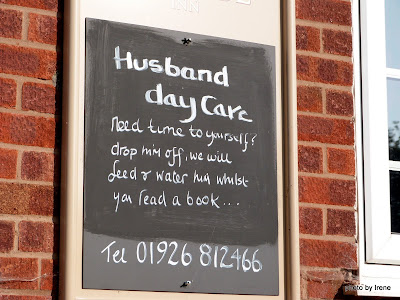 INN
Husband
day Care
Need time to yourself?
drop him off, we will
feed & water him whilst
you read a book...
Tel 01926 812466
Photo by Irene